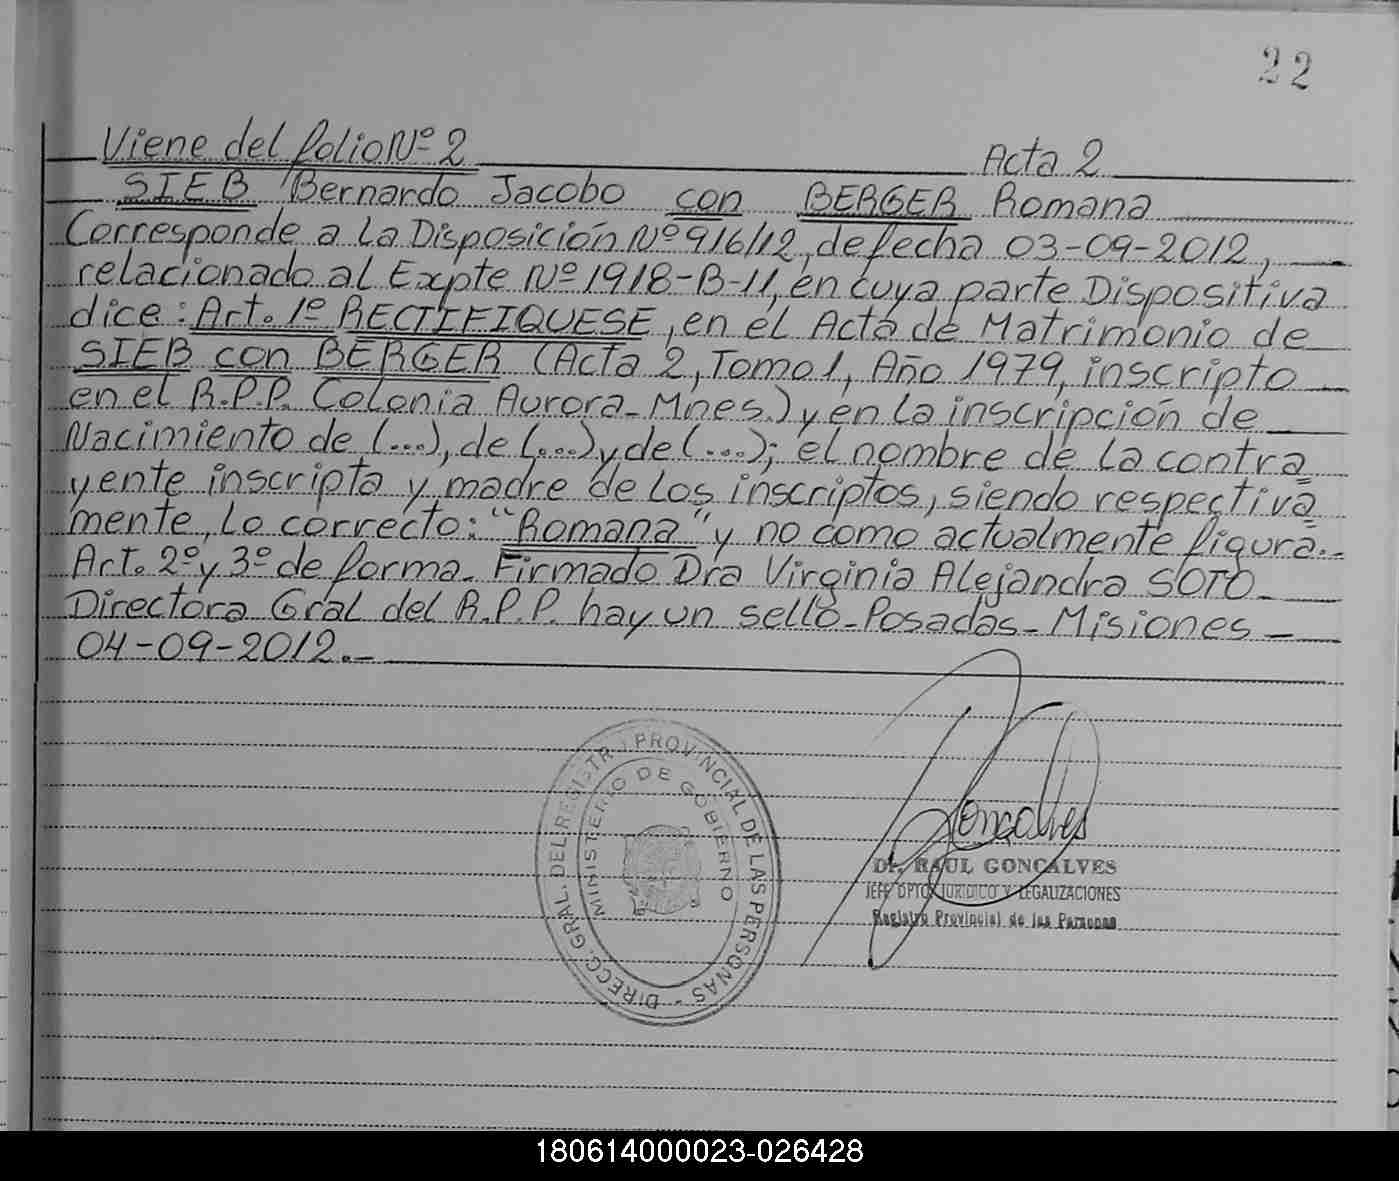 22
Viene del folio Nº 2 Acta 2
SIEB Bernardo Jacobo con BERGER Romana
Corresponde a la Disposición Nº 916/12, de fecha 03-09-2012,
relacionado al Expte Nº 1918-B-11, en cuya parte Dispositiva
dice: Art. 1º RECTIFIQUESE, en el Acta de Matrimonio de
SIEB con BERGER (Acta 2, Tomo 1, Año 1979, inscripto
en el R.P.P. Colonia Aurora-Mnes.) y en la inscripción de
Nacimiento de (...), de (...) y de (...); el nombre de la contra
yente inscripta y madre de los inscriptos, siendo respectiva=
mente, lo correcto: "Romana" y no como actualmente figura.-
Art. 2º y 3º de forma. Firmado Dra Virginia Alejandra SOTO-
Directora Gral del R.P.P. hay un sello-Posadas-Misiones-
04-09-2012.-
DIRECC. GRAL. DEL REGISTRO PROVINCIAL DE LAS PERSONAS -
MINISTERIO DE GOBIERNO
Goncalves
Dr. RAUL GONCALVES
JEFE DPTO JURIDICO Y LEGALIZACIONES
Registro Provincial de las Personas
180614000023-026428